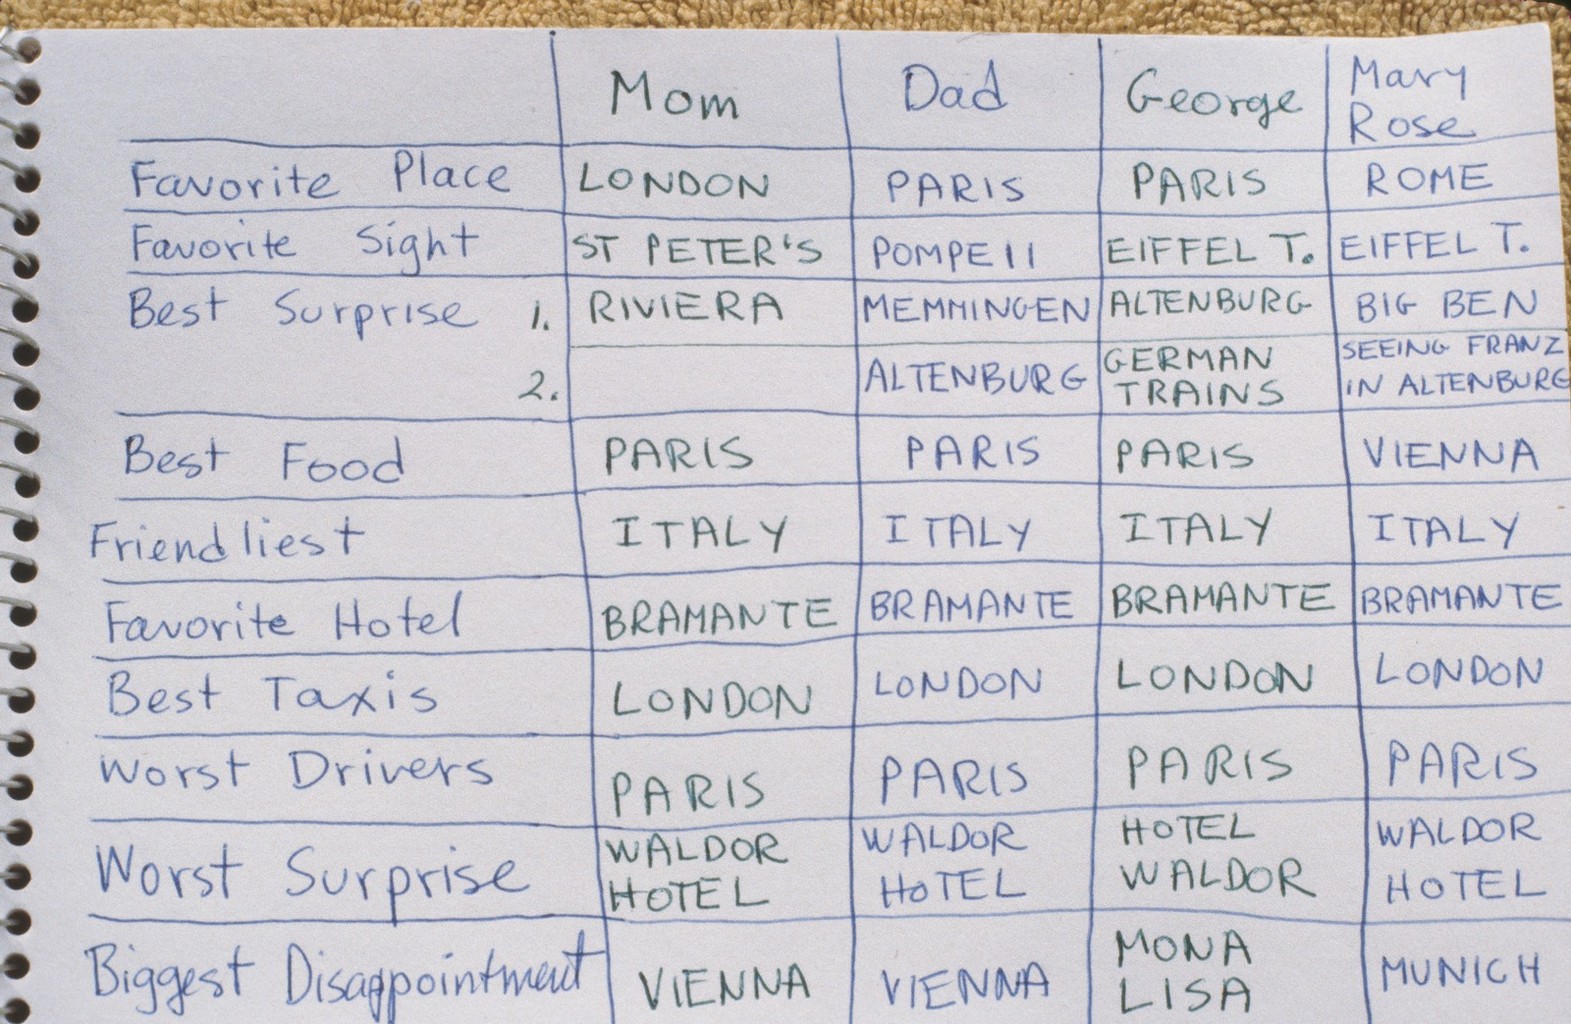 Mom Dad George Mary Rose
Favorite Place LONDON PARIS PARIS ROME
Favorite Sight ST PETER'S POMPEII EIFFEL T. EIFFEL T.
Best Surprise 1. RIVIERA MEMMINGEN ALTENBURG BIG BEN
2. ALTENBURG GERMAN TRAINS SEEING FRANZ IN ALTENBURG
Best Food PARIS PARIS PARIS VIENNA
Friendliest ITALY ITALY ITALY ITALY
Favorite Hotel BRAMANTE BRAMANTE BRAMANTE BRAMANTE
Best Taxis LONDON LONDON LONDON LONDON
Worst Drivers PARIS PARIS PARIS PARIS
Worst Surprise WALDOR HOTEL WALDOR HOTEL HOTEL WALDOR WALDOR HOTEL
Biggest Disappointment VIENNA VIENNA MONA LISA MUNICH